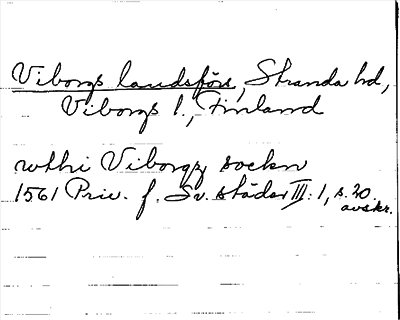 Viborgs landsförs, Stranda hd,
Viborgs l., Finland
wthi Viborgz sockn
1561 Priv. f. Sv. städer III: 1, s. 20
avskr.